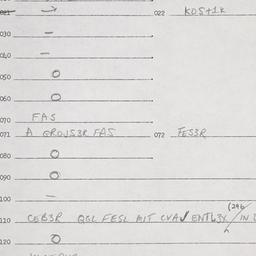 021 → 022 KOS+1K
030 –
040 –
050 0
060 0
070 FAS
071 A GROUS3R FAS 072 FES3R
080 0
090 0
100 –
110 CEB3R QGL FESL AIT CVA
120 0